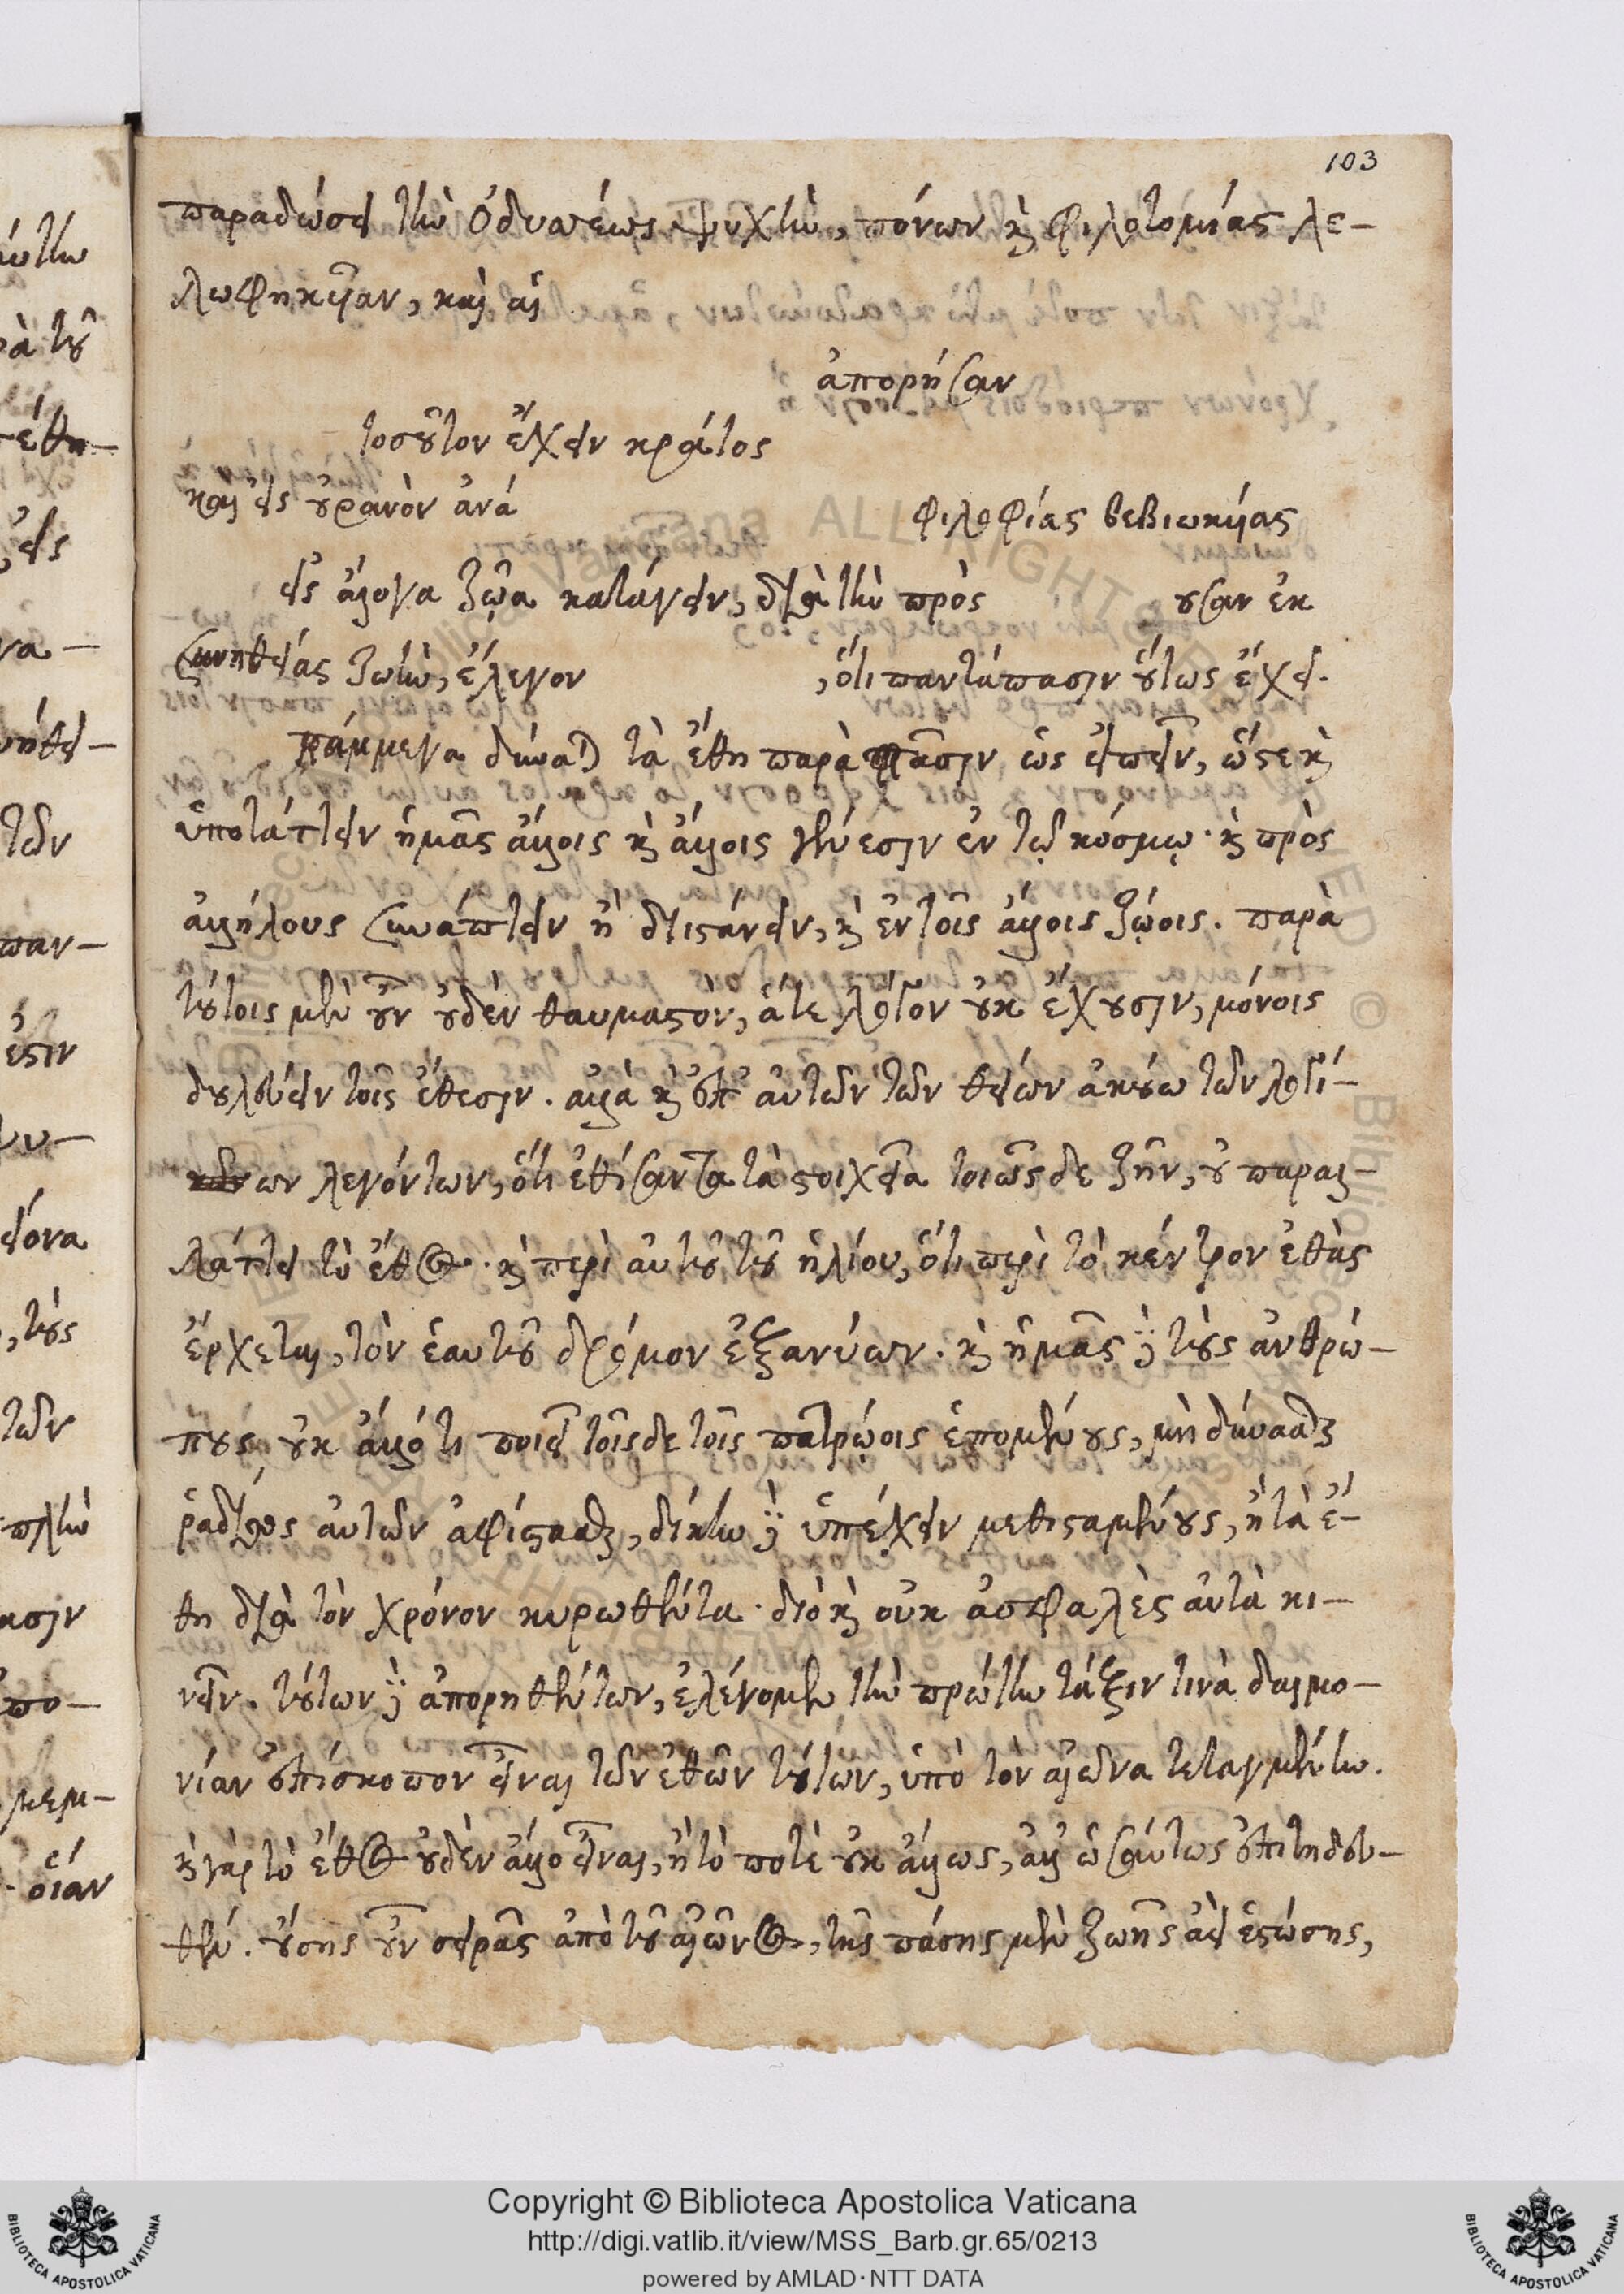 103
παραδώσει τὴν Ὀδυσσέως ψυχὴν, πόνων καὶ φιλοτομίας λε-
λωφηκυῖαν, καὶ αἱ
ἀπορήσαν
τοσοῦτον ἔχειν κράτος
καὶ εἰς οὐρανὸν ἀνά
φιλοφίας βεβιωκυίας
εἰς ἄλογα ζῷα κατάγειν, διὰ τὴν πρὸς
ουσαν ἐκ
συνηθείας ζωὴν, ἔλεγον
, ὅτι παντάπασιν οὕτως ἔχει.
πάμμεγα δύναται τὰ ἔθη παρὰ πᾶσιν ὡς εἰπεῖν, ὥστε καὶ
ὑποτάττειν ἡμᾶς ἄλλοις καὶ ἄλλοις γένεσιν ἐν τῷ κόσμῳ· καὶ πρὸς
ἀλλήλους συνάπτειν ἢ διιστάνειν, καὶ ἐν τοῖς ἄλλοις ζῴοις. παρὰ
τούτοις μὲν οὖν οὐδὲν θαυμαστὸν, ἅτε λόγον οὐκ ἔχουσιν, μόνοις
δουλεύειν τοῖς ἔθεσιν. ἀλλὰ καὶ ἐπ' αὐτῶν τῶν θείων ἀκούω τῶν λογί-
ων λεγόντων, ὅτι ἐθίσαντα τὰ στοιχεῖα τοιῶσδε ζῆν, οὐ παραλ-
λάττει τὸ ἔθος· καὶ περὶ αὐτοῦ τοῦ ἡλίου, ὅτι περὶ τὸ κέντρον ἐθὰς
ἔρχεται, τὸν ἑαυτοῦ δρόμον ἐξανύων. καὶ ἡμᾶς δὲ τοὺς ἀνθρώ-
πους οὐκ ἄλλό τι ποιεῖ τοῖσδε τοῖς πατρῴοις ἑπομένους, μὴ δύνασθαι
ῥαδίως αὐτῶν ἀφίστασθαι, δίκην δὲ ὑπέχειν μεθισταμένους, ἢ τὰ ἔ-
θη διὰ τὸν χρόνον κυρωθέντα· διὸ καὶ οὐκ ἀσφαλὲς αὐτὰ κι-
νεῖν. τούτων δὲ ἀπορηθέντων, ἐλέγομεν τὴν πρώτην τάξιν τινὰ δαιμο-
νίαν ἐπίσκοπον εἶναι τῶν ἐθῶν τούτων, ὑπὸ τὸν αἰῶνα τεταγμένην.
καὶ γὰρ τὸ ἔθος οὐδὲν ἄλλο εἶναι, ἢ τὸ ποτὲ οὐκ ἄλλως, ἀλλ' ὡσαύτως ἐπιτηδευ-
θέν. οὔσης οὖν σειρᾶς ἀπὸ τοῦ αἰῶνος, τῆς πάσης μὲν ζωῆς ἀεὶ ἑστώσης,
Copyright © Biblioteca Apostolica Vaticana
http://digi.vatlib.it/view/MSS_Barb.gr.65/0213
powered by AMLAD·NTT DATA